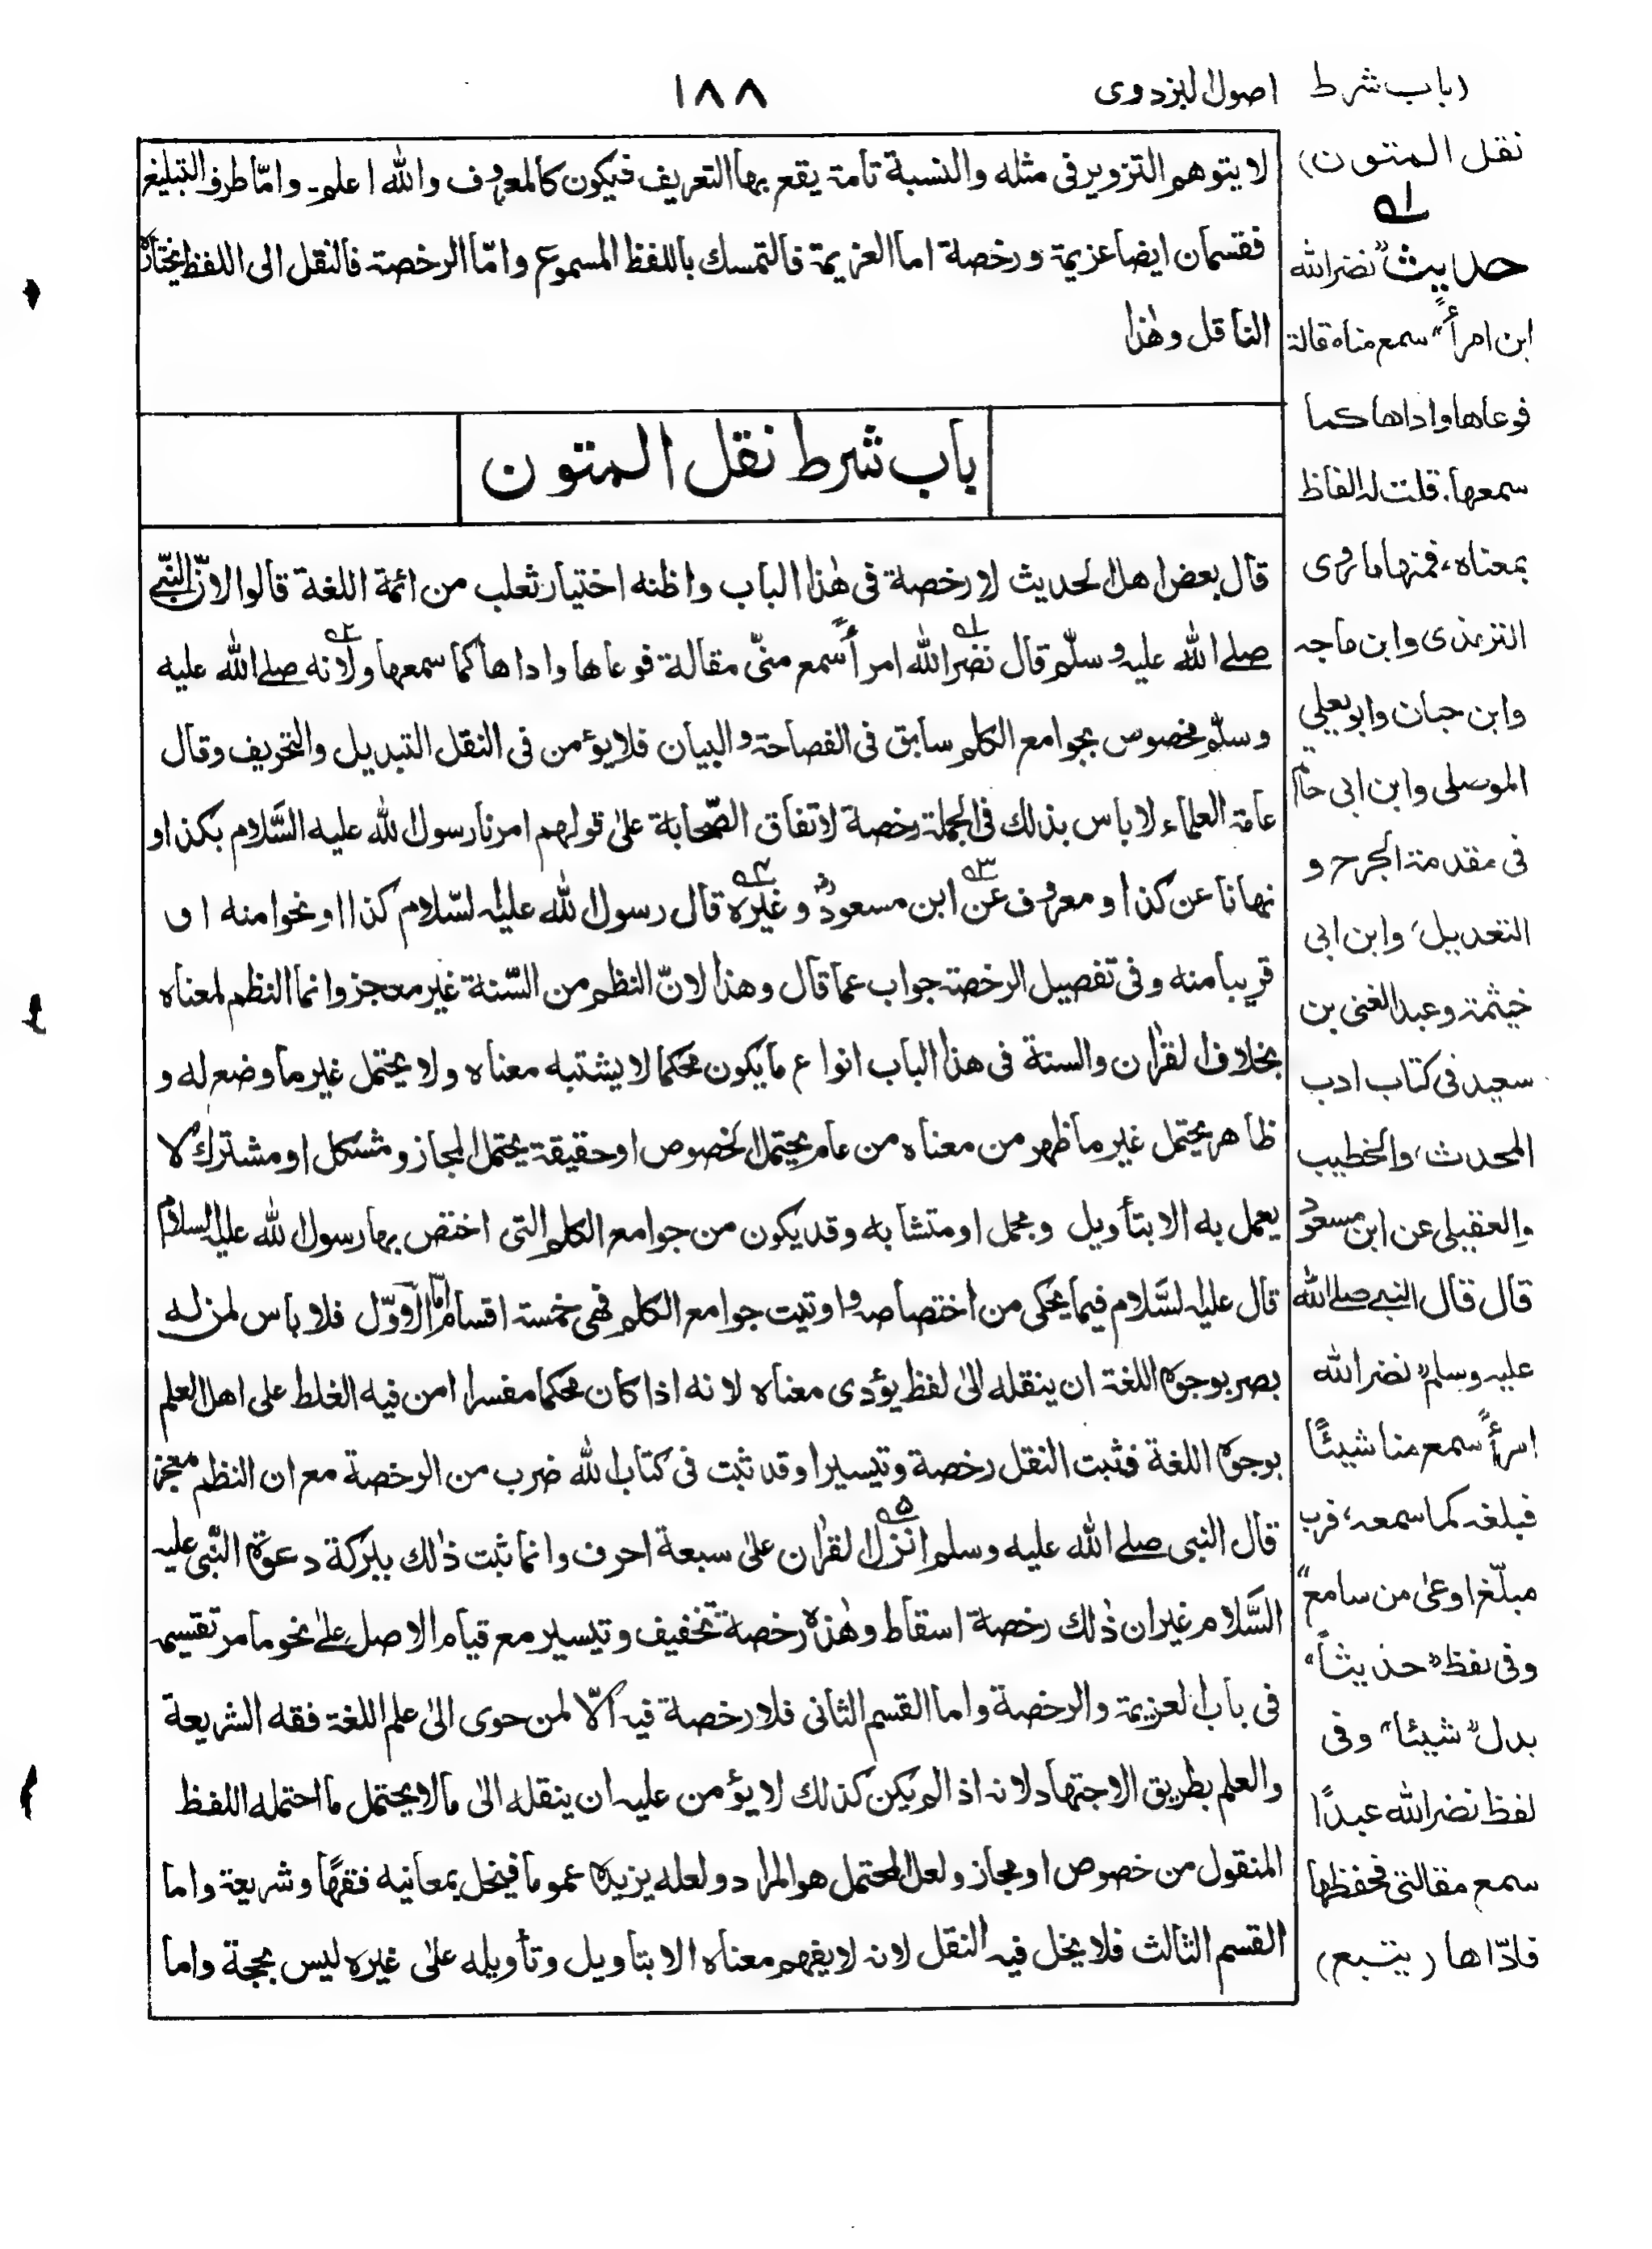 اصول البزدوی
١٨٨
لا یتوهم التزویر فی مثله والنسبة تامة یقع بها التعریف فیکون کالمعروف والله اعلم۔ وامّا طرف التبلیغ
فقسمان ایضا عزیمة ورخصة اما العزیمة فالتمسك باللفظ المسموع وامّا الرخصة فالنقل الی اللفظ یختاره
الناقل وهٰذا
باب شرط نقل المتون
قال بعض اهل الحدیث لا رخصة فی هٰذا الباب واظنه اختیار ثعلب من ائمة اللغة قالوا لانّ النّبی
صلے الله علیه وسلّم قال نضّر الله امرأً سمع منّی مقالة فوعاها واداها کما سمعها ولانه صلے الله علیه
وسلّم مخصوص بجوامع الکلم سابق فی الفصاحة والبیان فلا یؤمن فی النقل التبدیل والتحریف وقال
عامة العلماء لا باس بذلك فی الجملة رخصة لاتفاق الصّحابة علیٰ قولهم امرنا رسول الله علیه السَّلام بکذا و
نهانا عن کذا ومعروف عن ابن مسعودؓ وغیره قال رسول الله علیه السّلام کذا او نحوا منه او
قریبا منه وفی تفصیل الرخصة جواب عما قال وهذا لانّ النظم من السّنة غیر معجز وانما النظم لمعناه
بخلاف القرٰان والسنة فی هذا الباب انواع ما یکون محکما لا یشتبه معناه ولا یحتمل غیر ما وضع له و
ظاهر یحتمل غیر ما ظهر من معناه من عام یحتمل الخصوص او حقیقة یحتمل المجاز ومشکل او مشترك لا
یعمل به الا بتأویل ومجمل او متشابه وقد یکون من جوامع الکلم التی اختص بها رسول الله علیه السلام
قال علیه السَّلام فیما یحکی من اختصاصه واوتیت جوامع الکلم فهی خمسة اقسام امّا الاوّل فلا باس لمن له
بصر بوجوه اللغة ان ینقله الیٰ لفظ یؤدی معناه لانه اذا کان محکما مفسرا امن فیه الغلط علی اهل العلم
بوجوه اللغة فثبت النقل رخصة وتیسیرا وقد ثبت فی کتاب الله ضرب من الرخصة مع ان النظم معجز
قال النبی صلے الله علیه وسلم انزل القرٰان علیٰ سبعة احرف وانما ثبت ذٰلك ببرکة دعوة النّبی علیه
السَّلام غیر ان ذٰلك رخصة اسقاط وهٰذه رخصة تخفیف وتیسیر مع قیام الاصل علےٰ نحو ما مر تقسیمه
فی باب العزیمة والرخصة واما القسم الثانی فلا رخصة فیه الّا لمن حوی الیٰ علم اللغة فقه الشریعة
والعلم بطریق الاجتهاد لانه اذا لم یکن کذلك لا یؤمن علیه ان ینقله الی ما لا یحتمل ما احتمله اللفظ
المنقول من خصوص او مجاز ولعل المحتمل هو المراد ولعله یزیده عموما فیخل بمعانیه فقهًا وشریعة واما
القسم الثالث فلا یخل فیه النقل لانه لا یفهم معناه الا بتاویل وتأویله علیٰ غیره لیس بحجة واما
(باب شرط
نقل المتون)
١ه
حدیث "نضر الله
ابن امرأً" سمع مناه قالة
فوعاها واداها کما
سمعها. قلت له الفاظ
بمعناه، فمنها ما روی
الترمذی وابن ماجه
وابن حبان وابو یعلی
الموصلی وابن ابی حاتم
فی مقدمة الجرح و
التعدیل، وابن ابی
خیثمة وعبد الغنی بن
سعید فی کتاب ادب
المحدث، والخطیب
والعقیلی عن ابن مسعود
قال قال النبی صلے الله
علیه وسلم "نضر الله
امرأً سمع منا شیئًا
فبلغه کما سمعه، فرب
مبلّغ اوعیٰ من سامع"
وفی لفظ "حدیثاً"
بدل "شیئا" وفی
لفظ نضر الله عبدًا
سمع مقالتی فحفظها
فادّاها (یتبع)